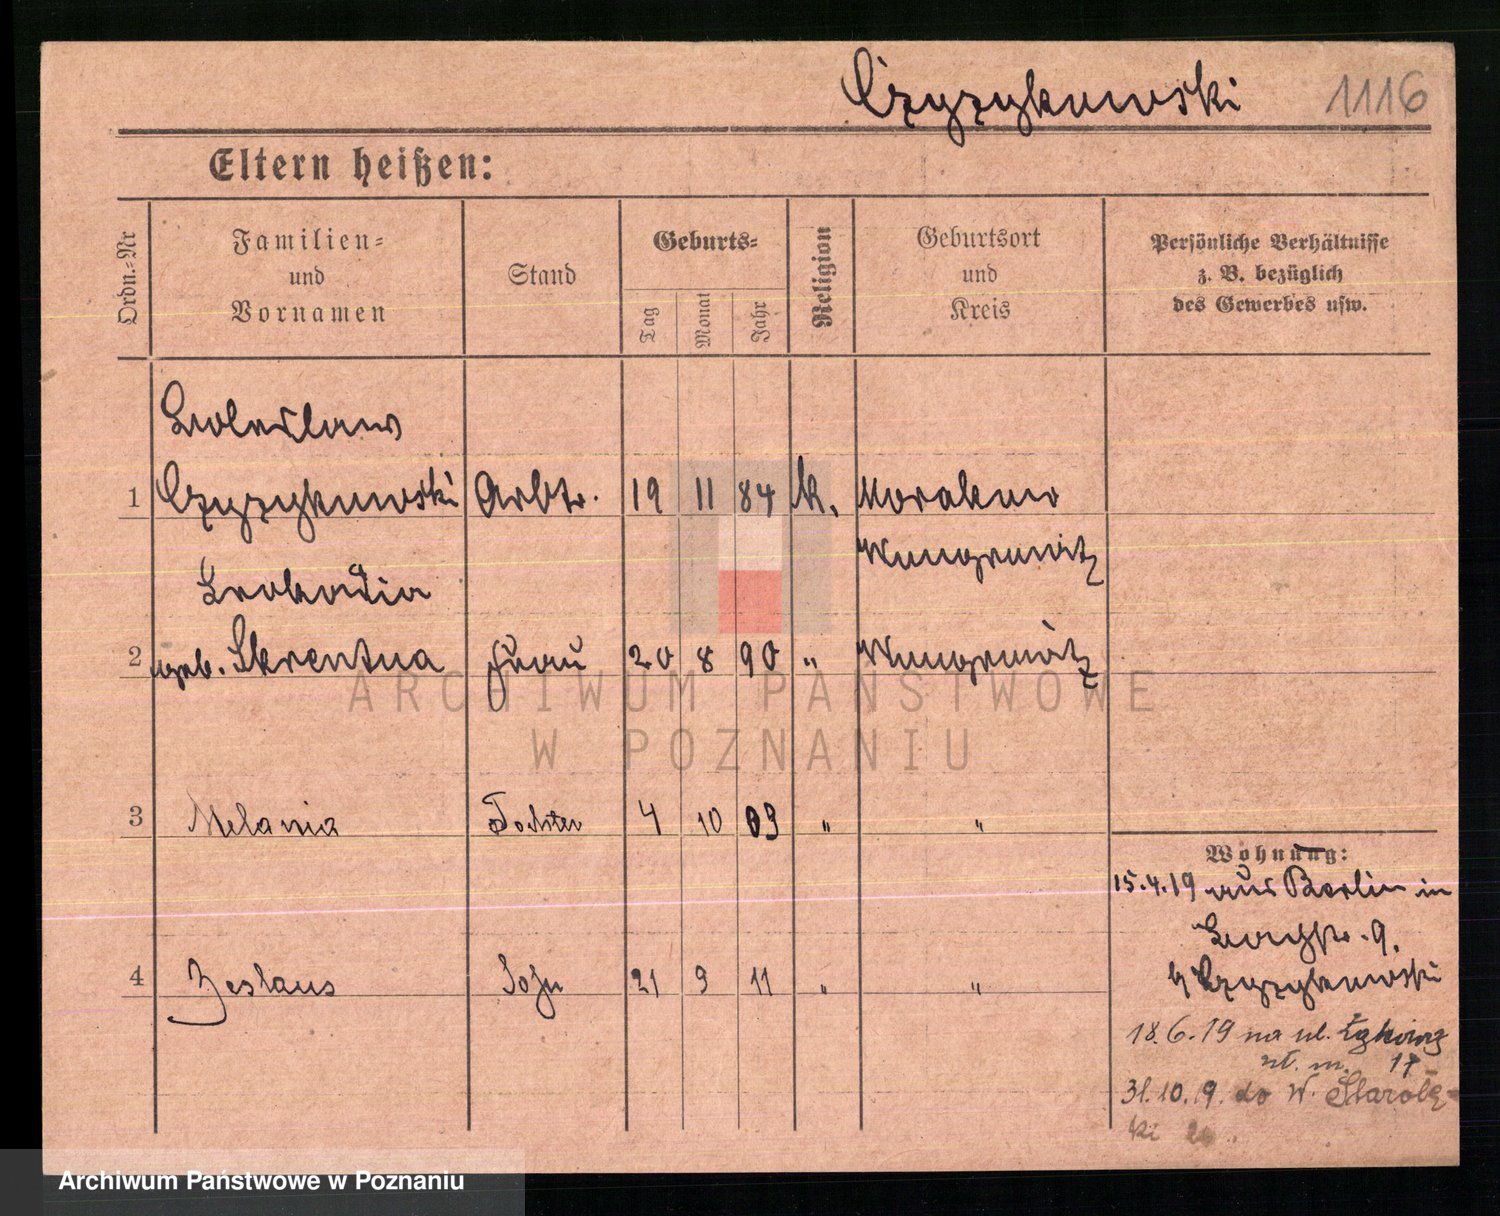 Czyzykowski 1116
Eltern heißen:
Ordn.-Nr
Familien-
und
Vornamen
Stand
Geburts-
Tag
Monat
Jahr
Religion
Geburtsort
und
Kreis
Persönliche Verhältnisse
z. B. bezüglich
des Gewerbes usw.
Boleslaus
1 Czyzykowski Arbtr. 19 11 84 k. Morakowo
Wongrowitz
Leokadia
2 geb. Skrentna Frau 20 8 90 " Wongrowitz
3 Melania Tochter 4 10 09 " "
4 Zeslaus Sohn 21 9 11 " "
Wohnung:
15.4.19 aus Berlin in
9.
b/ Czyzykowski
18.6.19 na ul.
m. 17
31.10.9. do W. Starołę-
ki
ARCHIWUM PAŃSTWOWE
W POZNANIU
Archiwum Państwowe w Poznaniu